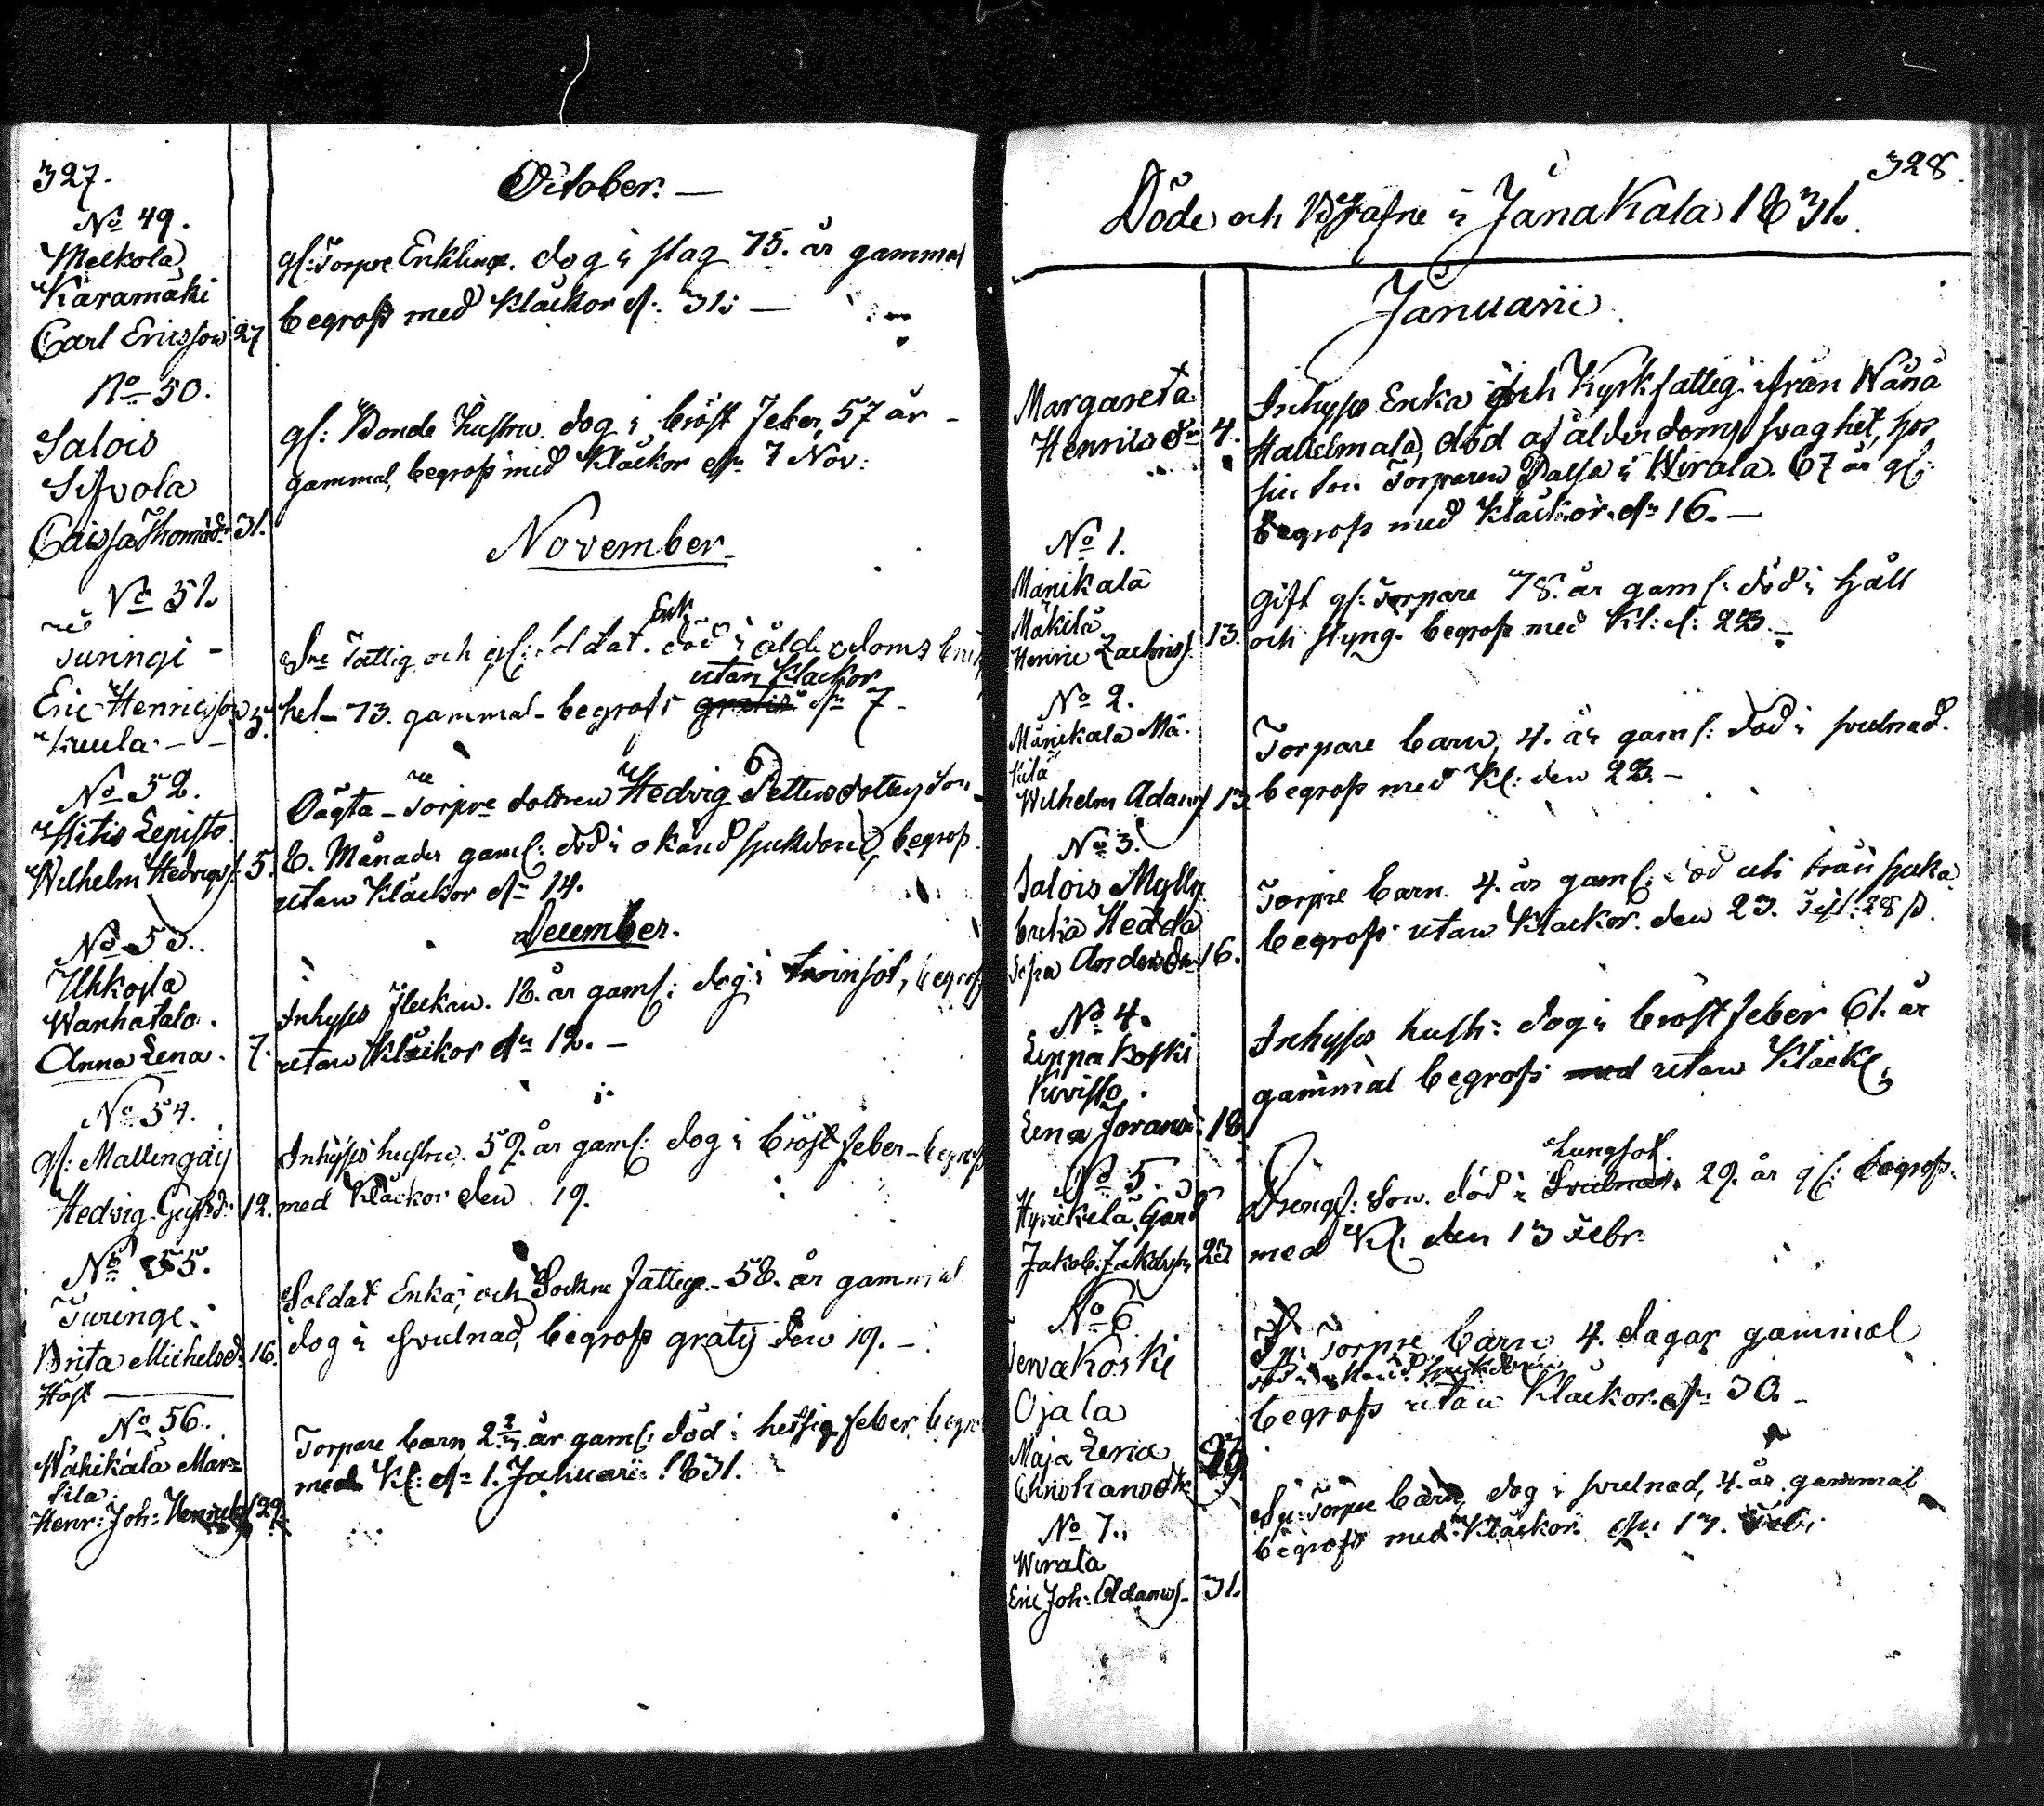 327.
October. —
No 49.
Melkola
Karamäki
Carl Ericsson 27
gl: Torpre Enkling. dog i slag 75. år gammal
begrofs med Klåckor d. 31. —
No 50.
Salois
Sifvola
Caisa Thomasdr 31.
gl: Bonde hustru. dog i bröst feber, 57 år —
gammal, begrofs med Klåckor dn 7 Nov:
November
No 51.
Turingi -
Eric Henricsson 3.
fattig och gl: Soldat. Enk. död i ålderdoms
het - 73. gammal - begrofs gratis utan Klåckor dn 7 -
No 52.
Hitis Lepistö
Wilhelm Hedvigs. 5.
Oägta - Torpre dottren Hedvig Pettersdotters Son
8. Månader gaml: död i okänd sjukdom, begrofs
utan Klåckor dn 14.
December.
No 53.
Uhkoila
Wanhatalo.
Anna Lena. 7.
Inhyses flickan. 18. år gaml: dog i tvinsot, begrofs
utan Klåckor dn 12. —
No 54.
gl: Mallingåg
Hedvig Gustsd: 12.
Inhyses hustru. 59. år gaml: dog i bröst feber - begrofs
med Klåckor den 19.
No 55.
Turinge.
Brita Michelsd. 16.
Soldat Enka, och Sockne fattige - 58. år gammal
dog i svulnad, begrofs gratis den 19. —
No 56.
Wähikälä Mar=
tila.
Henr: Joh: Henricss 29.
Torpare barn 2 2/3. år gaml: död i hetsig feber begr
med Kl: dn 1. Januarii 1831.
328.
Döde och Begrafne i Janakala 1831.
Januarii
Margareta
Henriksdr 4.
Inhyses Enka och Kyrkfattig ifrån Wånå
Hattelmala, död af ålderdoms svaghet, hos
sin son Torparen i Wirala. 67 år gl:
begrofs med Klåckor. dn 16. —
No 1.
Mänikalä
Mäkilä
Henric Zachriss. 13.
Gift gl: Torpare 78. år gaml: död i håll
och styng. begrofs med Kl: d: 23. —
No 2.
Mänikalä Mä-
kilä
Wilhelm Adams 13.
Torpare barn, 4. år gaml: död i svulnad.
begrofs med Kl: den 23. —
No 3.
Salois Mylly
Hedda
Sofia Andersdr 16.
Torpre barn. 4. år gaml: död uti trånsjuka
begrofs utan Klåckor. den 23.
No 4.
Leppäkoski
Kivistö.
Lena Joransd: 18
Inhyses hustr: dog i bröst feber 61. år
gammal begrofs med utan Klåck:
No 5.
Hyvikelä Gård
Jakob Jakobss 23
Drengs: Son. död i Svulnad Lungsot. 29. år gl: begrofs.
med Kl: den 13 Febr.
No 6.
Tervakoski
Ojala
Maja Lena
Torpre barn 4. dagar gammal
död i okänd sjukdom
begrofs utan Klåckor. dn 30. —
No 7.
Wirala
Eric Joh: Adams. 31.
Torpre barn, dog i svulnad, 4. år gammal
begrofs med Klåckor. dn 13. Feb: